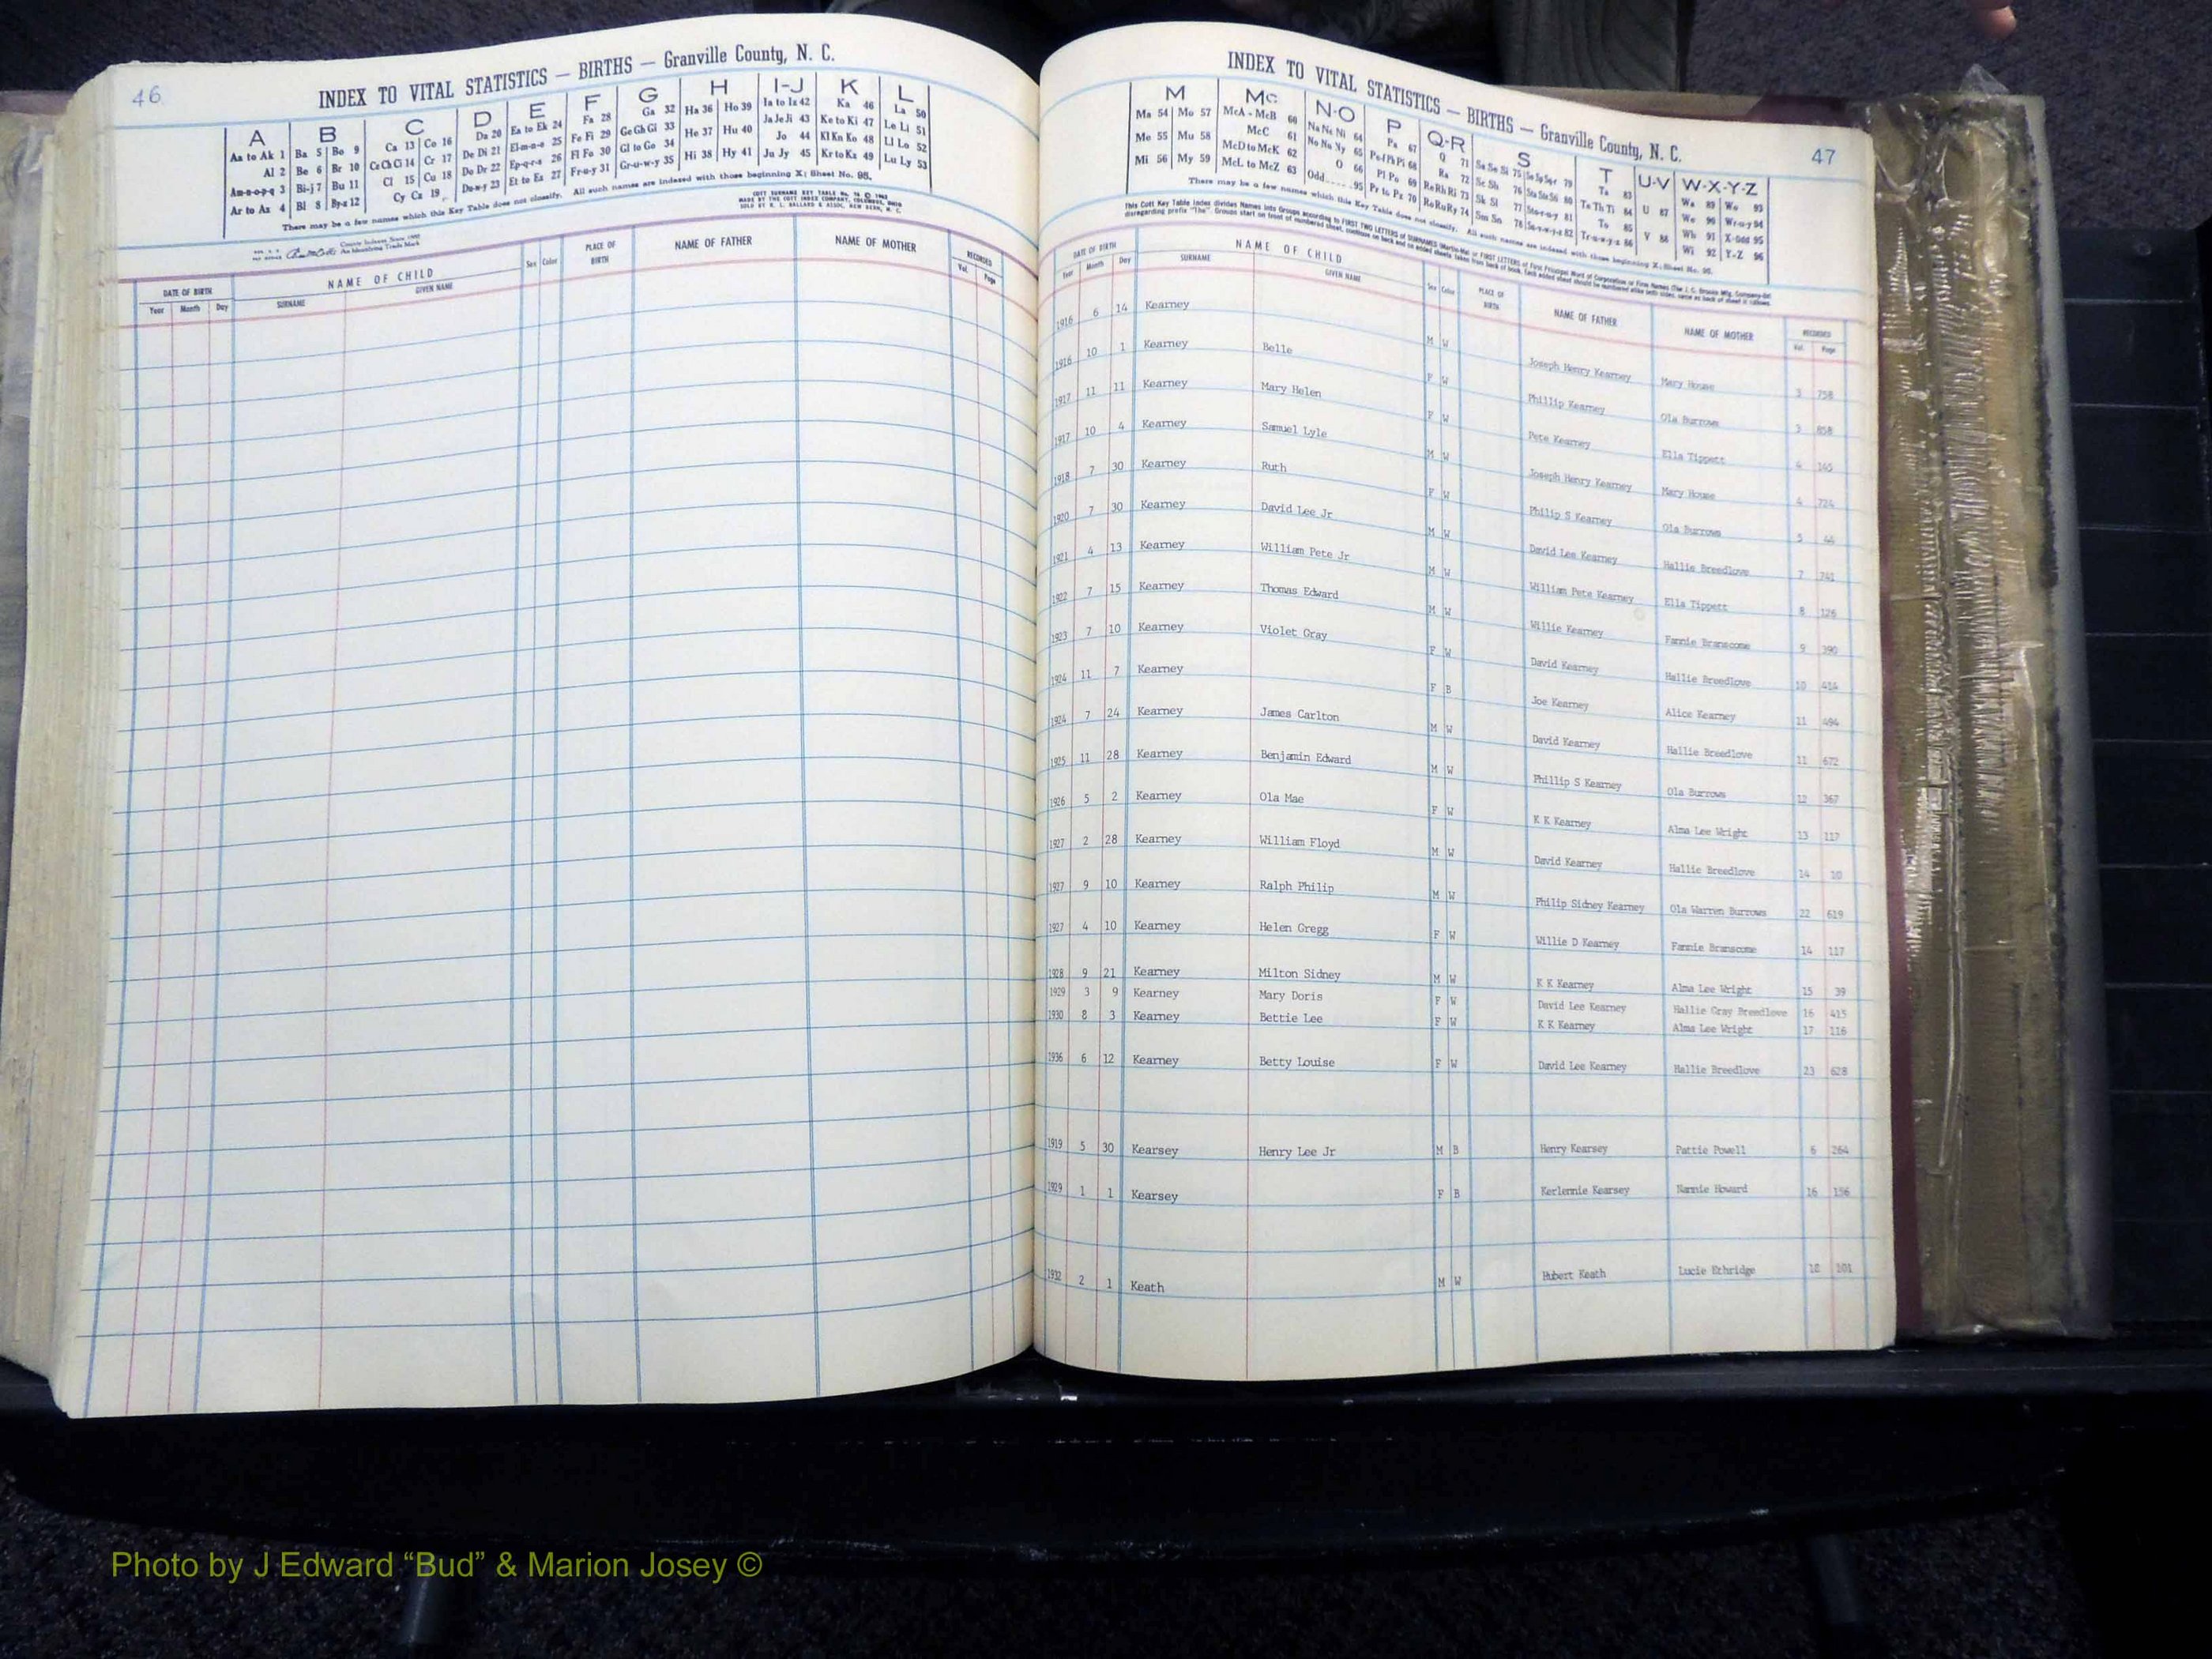 46
INDEX TO VITAL STATISTICS — BIRTHS — Granville County, N. C.
A B C D E F G H I-J K L
Aa to Ak 1 Ba 5 Bo 9 Ca 13 Co 16 Da 20 Ea to Ek 24 Fa 28 Ga 32 Ha 36 Ho 39 Ia to Iz 42 Ka 46 La 50
Al 2 Be 6 Br 10 Ce Ch Ci 14 Cr 17 De Di 21 El-m-n-o 25 Fe Fi 29 Ge Gh Gi 33 He 37 Hu 40 Ja Je Ji 43 Ke to Ki 47 Le Li 51
Am-n-o-p-q 3 Bi-j 7 Bu 11 Cl 15 Cu 18 Do Dr 22 Ep-q-r-s 26 Fl Fo 30 Gl to Go 34 Hi 38 Hy 41 Jo 44 Kl Kn Ko 48 Ll Lo 52
Ar to Az 4 Bl 8 By-z 12 Cy Cz 19 Du-w-y 23 Et to Ez 27 Fr-u-y 31 Gr-u-w-y 35 Ju Jy 45 Kr to Kz 49 Lu Ly 53
There may be a few names which this Key Table does not classify. All such names are indexed with those beginning X; Sheet No. 95.
County Indexes Since 1888
An Identifying Trade Mark
DATE OF BIRTH NAME OF CHILD Sex Color PLACE OF BIRTH NAME OF FATHER NAME OF MOTHER RECORDED
Year Month Day SURNAME GIVEN NAME Vol. Page
47
INDEX TO VITAL STATISTICS — BIRTHS — Granville County, N. C.
M Mc N-O P Q-R S T U-V W-X-Y-Z
Ma 54 Mo 57 McA - McB 60 Na Ne Ni 64 Pa 67 Q 71 Sa Se Si 75 Ta 83 U 87 Wa 89 Wo 93
Me 55 Mu 58 McC 61 No Nu Ny 65 Pe-f Ph Pi 68 Ra 72 Sc Sh 76 Te Th Ti 84 V 88 We 90 Wr-u-y 94
Mi 56 My 59 McD to McK 62 O 66 Pl Po 69 Re Rh Ri 73 Sk Sl 77 To 85 Wh 91 X-Odd 95
McL to McZ 63 Odd 95 Pr to Pz 70 Ro Ru Ry 74 Sm Sn 78 Tr-u-w-y-z 86 Wi 92 Y-Z 96
There may be a few names which this Key Table does not classify. All such names are indexed with those beginning X; Sheet No. 95.
DATE OF BIRTH NAME OF CHILD Sex Color PLACE OF BIRTH NAME OF FATHER NAME OF MOTHER RECORDED
Year Month Day SURNAME GIVEN NAME Vol. Page
1916 6 14 Kearney M W Joseph Henry Kearney Mary House 3 758
1916 10 1 Kearney Belle F W Phillip Kearney Ola Burrows 3 858
1917 11 11 Kearney Mary Helen F W Pete Kearney Ella Tippett 4 165
1917 10 4 Kearney Samuel Lyle M W Joseph Henry Kearney Mary House 4 724
1918 7 30 Kearney Ruth F W Philip S Kearney Ola Burrows 5 44
1920 7 30 Kearney David Lee Jr M W David Lee Kearney Hallie Breedlove 7 741
1921 4 13 Kearney William Pete Jr M W William Pete Kearney Ella Tippett 8 126
1922 7 15 Kearney Thomas Edward M W Willie Kearney Fannie Branscome 9 390
1923 7 10 Kearney Violet Gray F W David Kearney Hallie Breedlove 10 414
1924 11 7 Kearney F B Joe Kearney Alice Kearney 11 494
1924 7 24 Kearney James Carlton M W David Kearney Hallie Breedlove 11 672
1925 11 28 Kearney Benjamin Edward M W Phillip S Kearney Ola Burrows 12 367
1926 5 2 Kearney Ola Mae F W K K Kearney Alma Lee Wright 13 117
1927 2 28 Kearney William Floyd M W David Kearney Hallie Breedlove 14 10
1927 9 10 Kearney Ralph Philip M W Philip Sidney Kearney Ola Warren Burrows 22 619
1927 4 10 Kearney Helen Gregg F W Willie D Kearney Fannie Branscome 14 117
1928 9 21 Kearney Milton Sidney M W K K Kearney Alma Lee Wright 15 39
1929 3 9 Kearney Mary Doris F W David Lee Kearney Hallie Gray Breedlove 16 415
1930 8 3 Kearney Bettie Lee F W K K Kearney Alma Lee Wright 17 116
1936 6 12 Kearney Betty Louise F W David Lee Kearney Hallie Breedlove 23 628
1919 5 30 Kearsey Henry Lee Jr M B Henry Kearsey Pattie Powell 6 264
1929 1 1 Kearsey F B Kerlennie Kearsey Nannie Howard 16 156
1932 2 1 Keath M W Hubert Keath Lucie Ethridge 18 101
Photo by J Edward “Bud” & Marion Josey ©